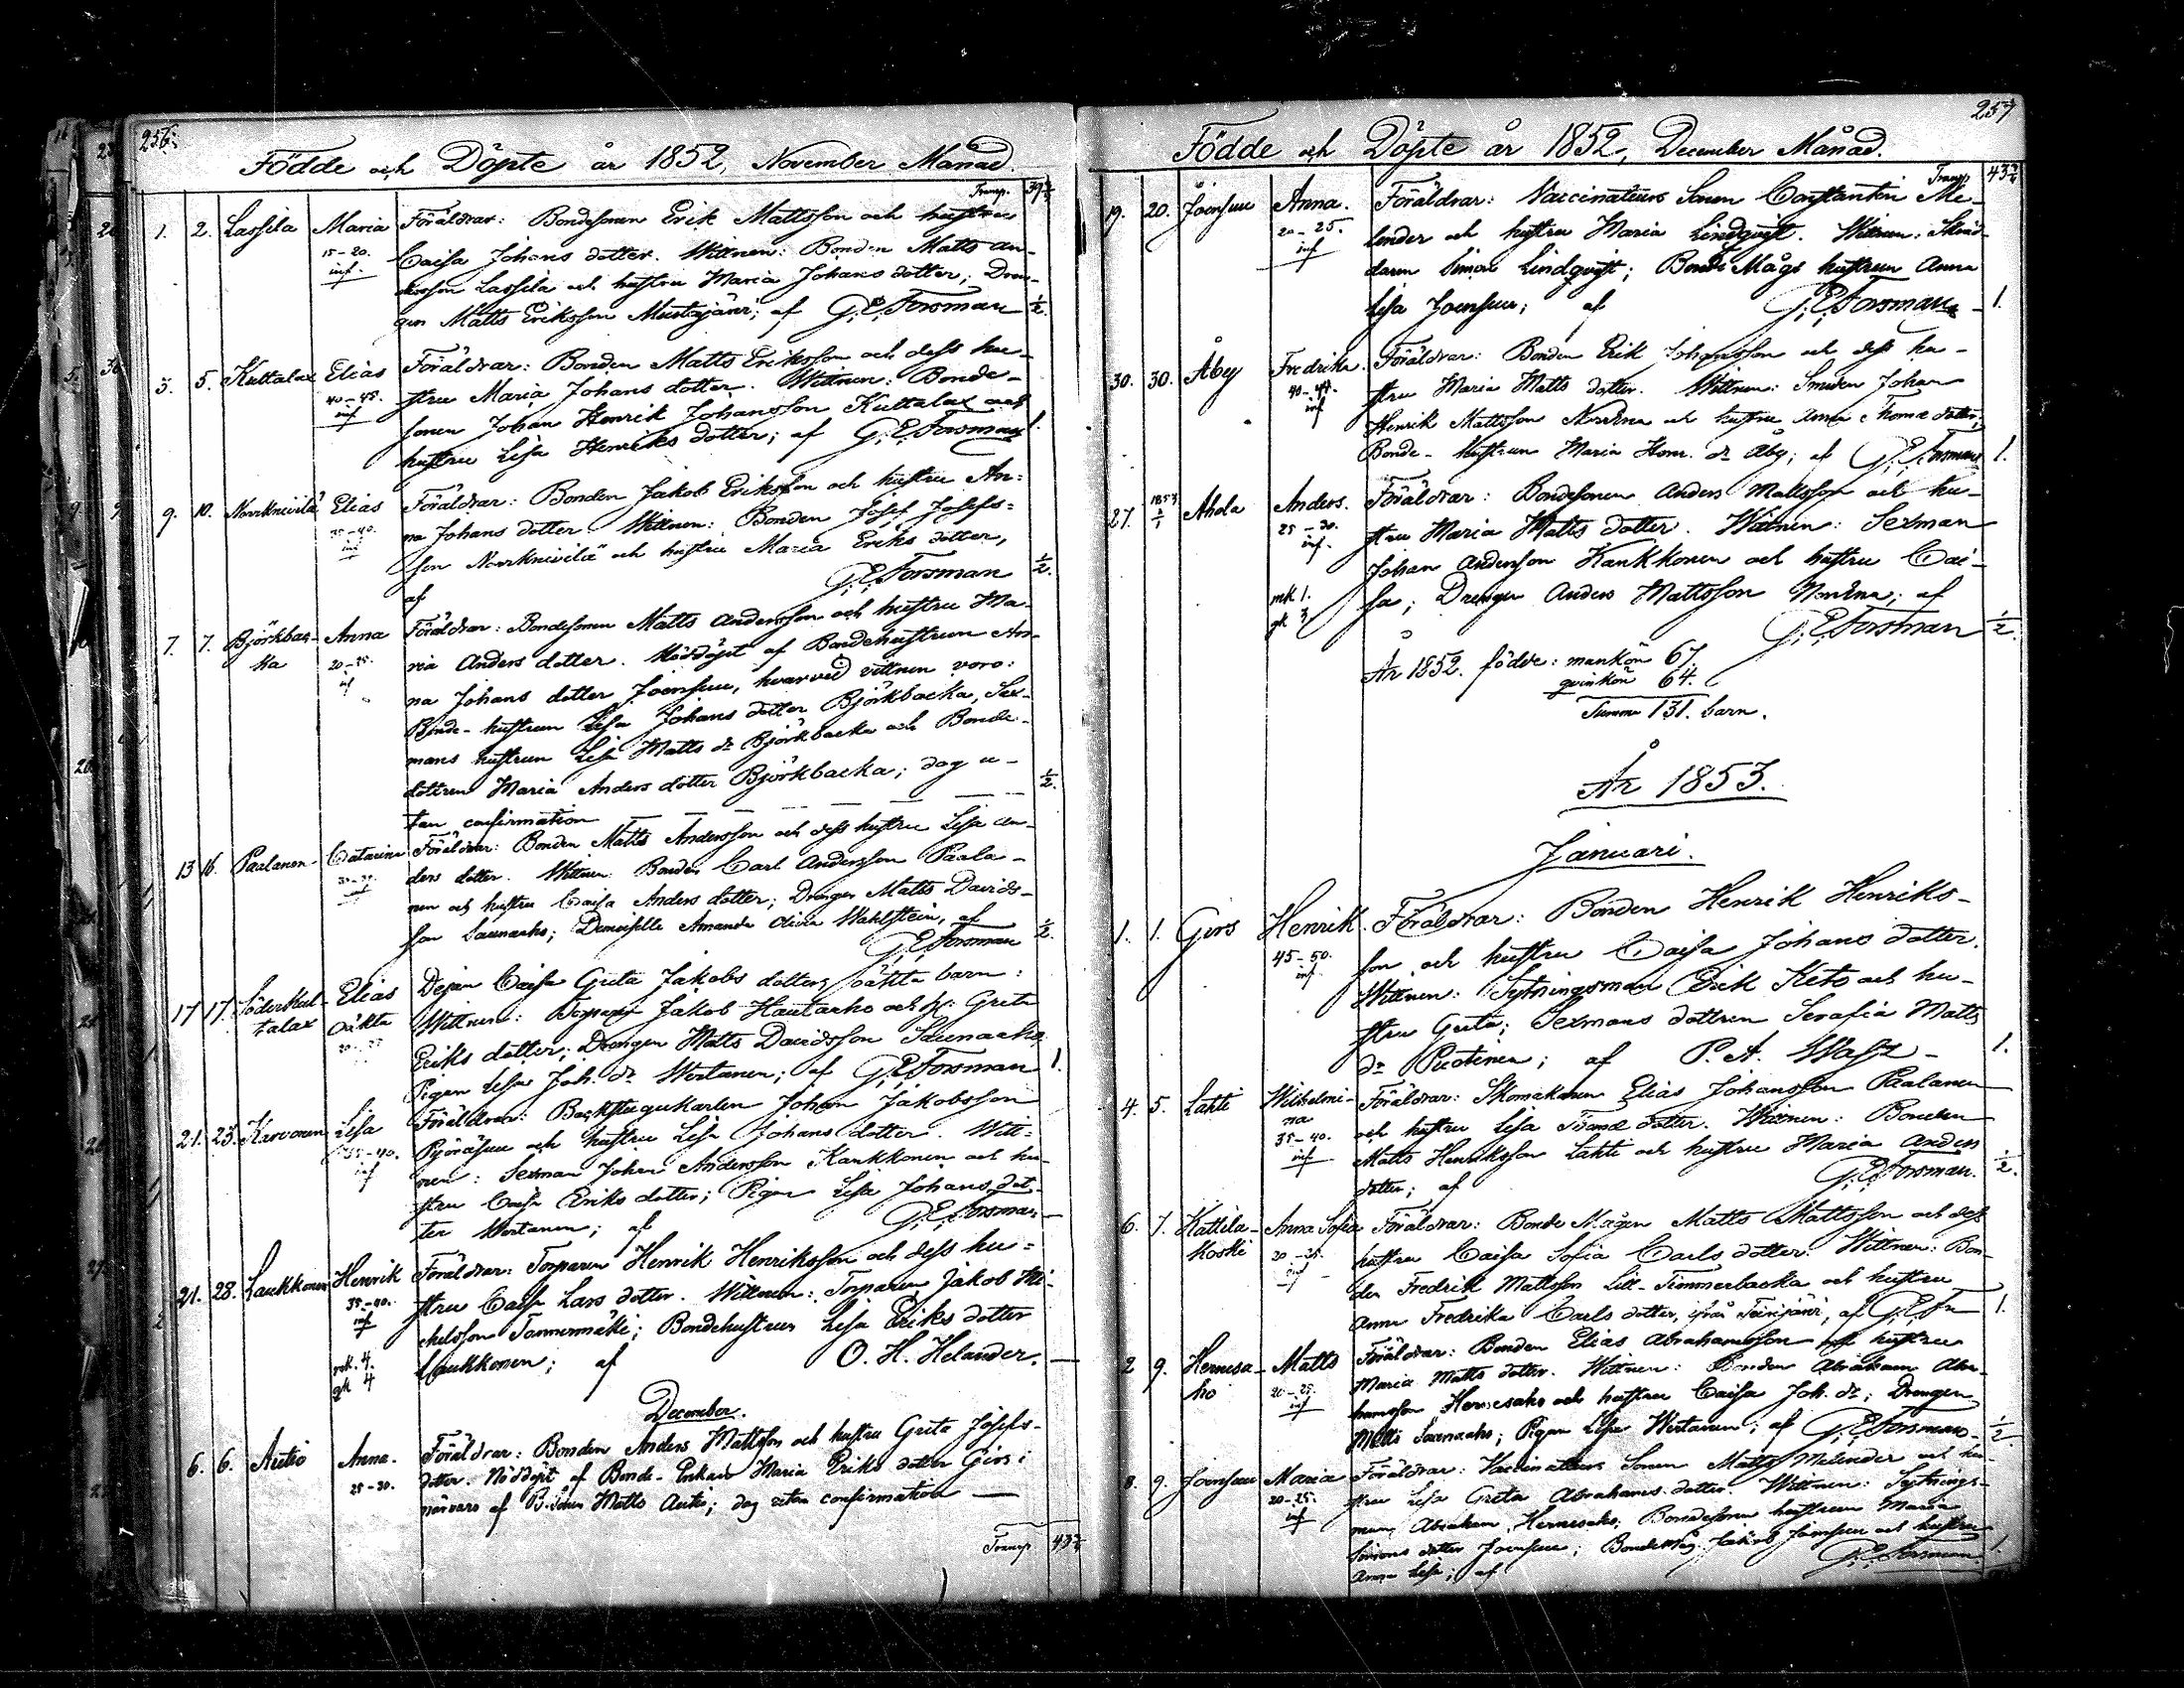 256.
Födde och Döpte år 1852, November Månad.
Transp. 39 3/4
1. 2. Lassila Maria Föräldrar: Bondesonen Erik Mattsson och hustru
15-20. Caisa Johans dotter. Wittnen: Bonden Matts An-
inf. dersson Lassila och hustru Maria Johans dotter; Dren-
gen Matts Eriksson Mustajärvi; af G. E. Forsman 1/2.
3. 5. Kuttalax Elias Föräldrar: Bonden Matts Eriksson och dess hu-
40-45. stru Maria Johans dotter. Wittnen: Bonde-
inf sonen Johan Henrik Johansson Kuttalax och
hustru Lisa Henriks dotter; af G. E. Forsman 1.
9. 10. Norrknivilä Elias Föräldrar: Bonden Jakob Eriksson och hustru An-
35-40. na Johans dotter. Wittnen: Bonden Josef Josefs-
inf son Norrknivilä och hustru Maria Eriks dotter,
af G. E. Forsman 1/2.
7. 7. Björkbac- Anna Föräldrar: Bondesonen Matts Andersson och hustru Ma-
ka 20-25. ria Anders dotter. Nöddöpt af Bondehustrun An-
inf na Johans dotter Joensuu, hvarvid vittnen voro:
Bonde-hustrun Lisa Johans dotter Björkbacka, Sex-
mans hustrun Lisa Matts dr Björkbacka och Bonde-
dottren Maria Anders dotter Björkbacka; dog u- 1/2.
tan confirmation
13 16. Paalanen Catarina Föräldrar: Bonden Matts Andersson och dess hustru Lisa An-
ders dotter. Wittnen: Bonden Carl Andersson Paala-
inf nen och hustru Caisa Anders dotter; Drengen Matts Davids-
son Saunaaho; Demoiselle Amanda Olivia Wahlstein, af
G. E. Forsman 1/2.
17 17. Söderkut- Elias Dejan Caisa Greta Jakobs dotters oäkta barn:
talax oäkta Wittnen: Torparen Jakob Hautaaho och h. Greta
Eriks dotter; Drengen Matts Davidsson Saunaaho,
Pigan Lisa Joh. dr Wertanen; af G. E. Forsman 1.
21. 23. Karvonen Lisa Föräldrar: Backstugukarlen Johan Jakobsson
35-40. Pyöräsuu och hustru Lisa Johans dotter. Witt-
inf nen: Sexman Johan Andersson Kankkonen och hu-
stru Caisa Eriks dotter; Pigan Lisa Johans dot-
ter Wertanen; af G. E. Forsman —
21. 28. Laukkonen Henrik Föräldrar: Torparen Henrik Henriksson och dess hu-
35-40. stru Caisa Lars dotter. Wittnen: Torparen Jakob Mi-
inf chelsson Tammermäki; Bondehustrun Lisa Eriks dotter
mk. 4. Laukkonen; af O. H. Helander. —
qk 4
December.
6. 6. Autio Anna. Föräldrar: Bonden Anders Mattsson och hustru Greta Josefs-
25-30. dotter. Nöddöpt af Bonde-Enkan Maria Eriks dotter Girs i
närvaro af B. Sonen Matts Autio; dog utan confirmation —
Transp 43 3/4
257
Födde och Döpte år 1852, December Månad.
Transp 43 3/4
19. 20. Joensuu Anna. Föräldrar: Vaccinateurs Sonen Constantin Me-
20-25. lender och hustru Maria Lindqvist. Wittnen: Skräd-
inf daren Simon Lindqvist; Bonde Mågs hustrun Anna
Lisa Joensuu; af G. E. Forsman 1.
30. 30. Åby Fredrika. Föräldrar: Bonden Erik Johansson och dess hu-
inf stru Maria Matts dotter. Wittnen: Smeden Johan
Henrik Mattsson Norrena och hustru Anna Thomæ dotter;
Bonde-hustrun Maria Henr. dr Åby; af G. E. Forsman 1.
27. 1853 2/1 Ahola Anders. Föräldrar: Bondesonen Anders Mattsson och hu-
25-30. stru Maria Matts dotter. Wittnen: Sexman
inf. Johan Andersson Kankkonen och hustru Cai-
mk 1. sa; Drengen Anders Mattsson Norrena; af
qk 3 G. E. Forsman 1/2.
År 1852. födde: mankön 67.
qvinkön 64.
Summa 131. barn.
År 1853.
Januari.
1. 1. Girs Henrik. Föräldrar: Bonden Henrik Henriks-
45-50. son och hustru Caisa Johans dotter.
inf. Wittnen: Sytningsman Erik Keto och hu-
stru Greta; Sexmans dottren Serafia Matts
dr Puotinen; af P. A. Wass 1.
4. 5. Lahti Wilhelmi- Föräldrar: Skomakaren Elias Johansson Paalanen
na och hustru Lisa Thomæ dotter. Wittnen: Bonden
35-40. Matts Henriksson Lahti och hustru Maria Anders
inf dotter; af G. E. Forsman. 1/2.
6. 7. Kattila- Anna Sofia Föräldrar: Bonde Mågen Matts Mattsson och dess
koski 20-25. hustru Caisa Sofia Carls dotter. Wittnen: Bon-
inf den Fredrik Mattsson Lill-Timmerbacka och hustru
Anna Fredrika Carls dotter, ifrån Teirijärvi, af G. E. Fn 1.
2 9. Hernesa- Matts Föräldrar: Bonden Elias Abrahamsson och hustru
ho 20-25. Maria Matts dotter. Wittnen: Bonden Abraham Abra-
inf hamsson Hernesaho och hustru Caisa Joh. dr; Drengen
Matts Saunaaho; Pigan Lisa Wertanen; af G. E. Forsman 1/2.
8. 9. Joensuu Maria Föräldrar: Vaccinateurs Sonen Matts Melender och hu-
20-25. stru Lisa Greta Abrahams dotter. Wittnen: Sytnings-
inf man Abraham Hernesaho; Bondesons hustrun Maria
Simons dotter Joensuu; Bonde Måg Jakob Joensuu och hustru
Anna Lisa; af G. E. Forsman. 1.